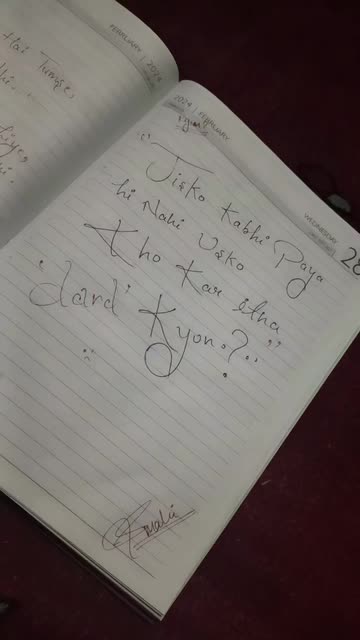 Hai
FEBRUARY | 2024
2024 | FEBRUARY
WEDNESDAY
28
"Jisko Kabhi Paya
hi Nahi Usko
Kho Kar itna
'dard' Kyon?"